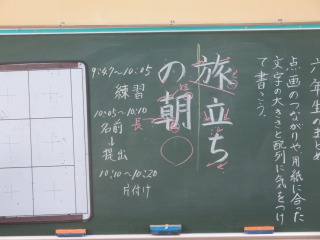 六年生のまとめ
点画のつながりや用紙に合った
文字の大きさと配列に気をつけ
て書こう。
旅立ち
の朝
長
9:47~10:05
練習
10:05~10:10
名前
↓
提出
10:10~10:20
片付け